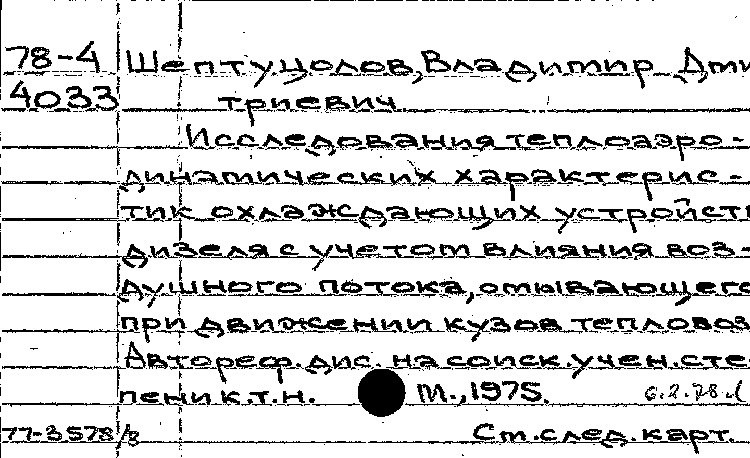 78-4 Шептуцолов, Владимир Дми
4033 триевич
Исследования теплоаэро-
динамических характерис-
тик охлаждающих устройств
дизеля с учетом влияния воз-
душного потока, омывающего
при движении кузов тепловоз
Автореф. дис. на соиск. учен. сте
пени к.т.н. М., 1975. 6.2.78.
77-3578/8 См. след. карт.